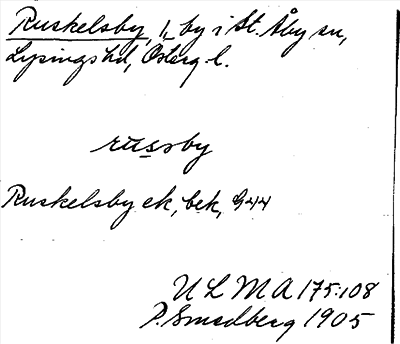 Ruskelsby, by i St. Åby sn,
Lysings hd, Österg. l.
russby
Ruskelsby ek, bek, G44
ULMA 175:108
P. Smedberg 1905